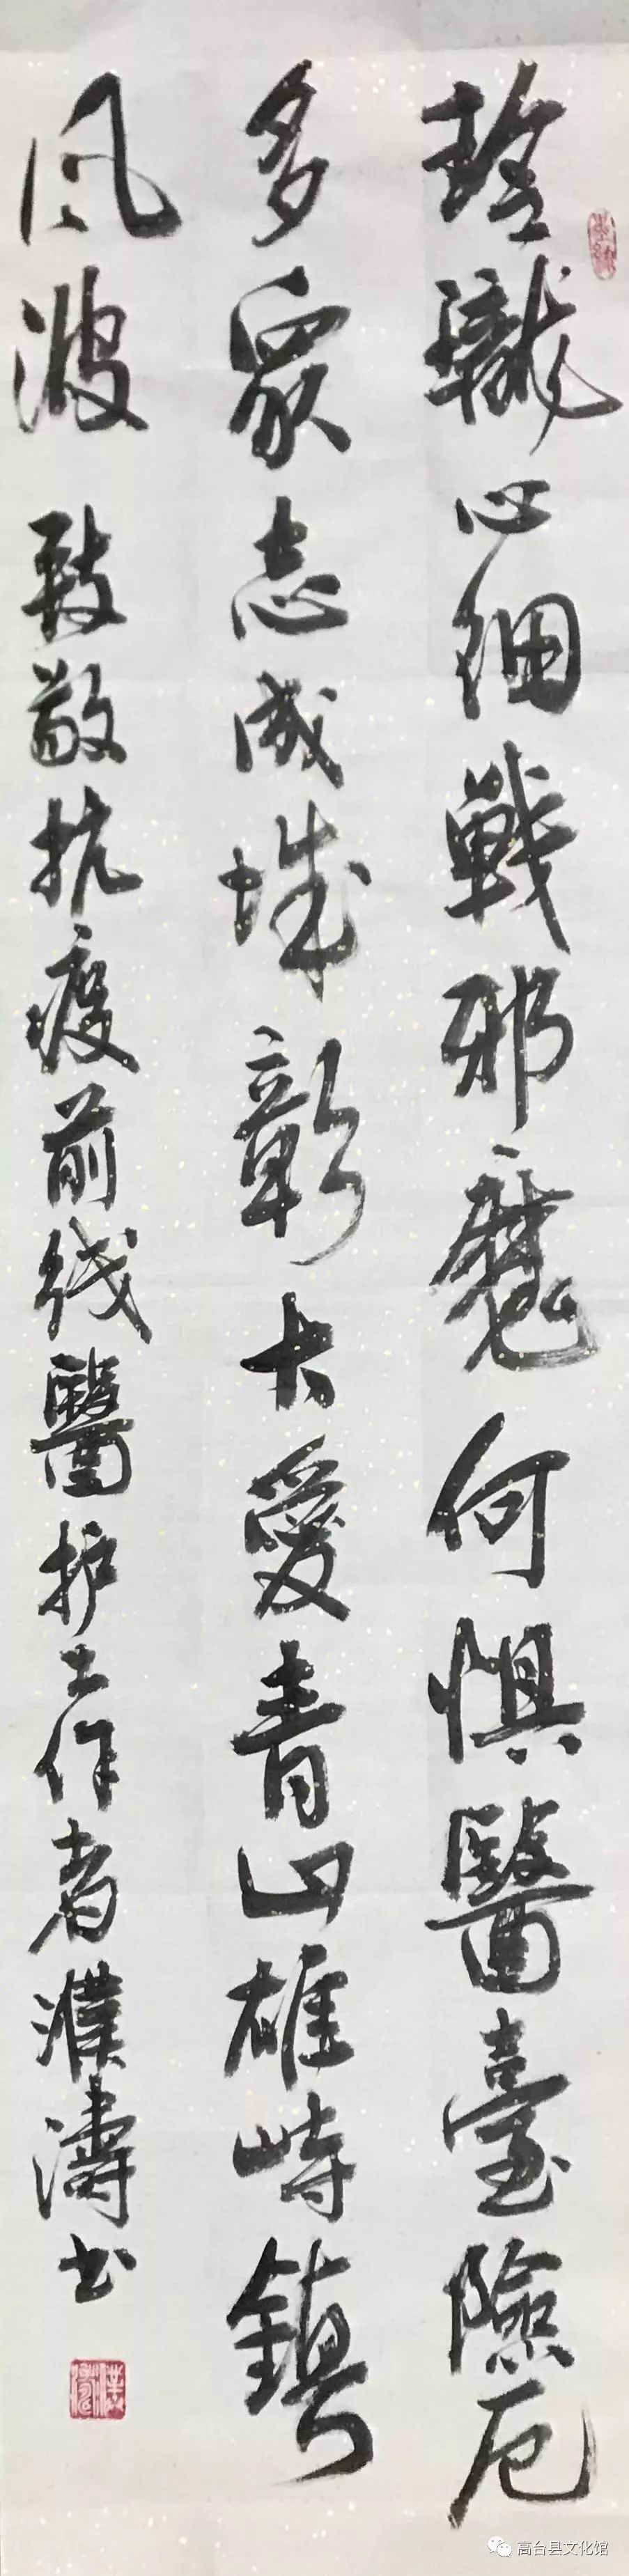 玲瓏心细戰邪魔何惧醫臺險厄
多眾志成城彰大愛青山雄峙鎮
风波 致敬抗疫前线醫护工作者濮濤书
高台县文化馆